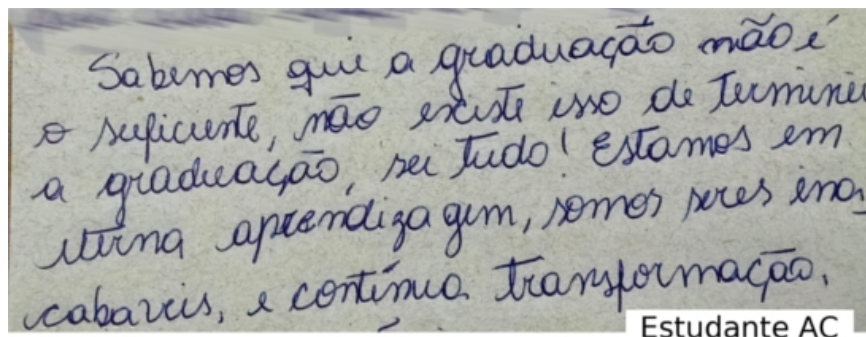 Sabemos que a graduação não é
o suficiente, não existe isso de terminei
a graduação, sei tudo! Estamos em
eterna aprendizagem, somos seres ina
cabaveis, e contínua transformação.
Estudante AC